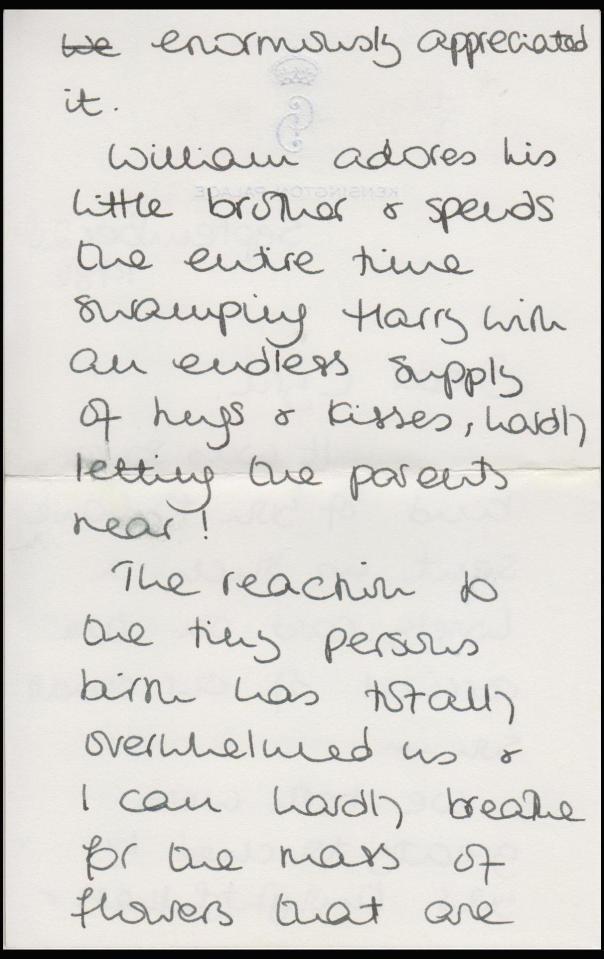 ~~we~~ enormously appreciated
it.
William adores his
little brother & spends
the entire time
swamping Harry with
an endless supply
of hugs & kisses, hardly
letting the parents
near!
The reaction to
one tiny persons
birth has totally
overwhelmed us &
I can hardly breathe
for the mass of
flowers that are
KENSINGTON PALACE